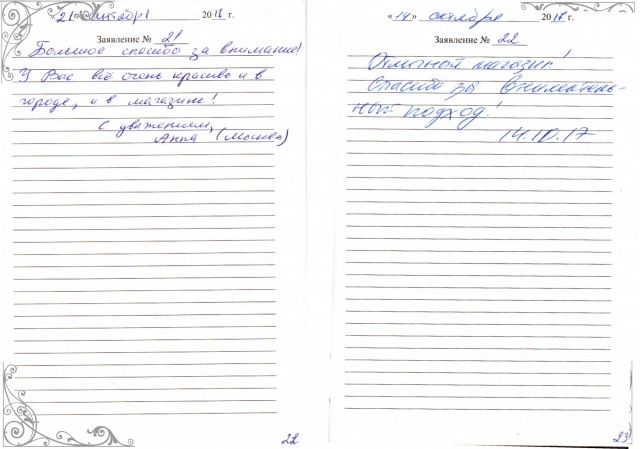 «21» октября 2017 г.
Заявление № 21
Большое спасибо за внимание!
У Вас всё очень красиво и в
городе, и в магазине!
С уважением,
Анна (Москва)
22
«14» октября 2017 г.
Заявление № 22
Отличный магазин!
Спасибо за вниматель-
ный подход!
14.10.17
23